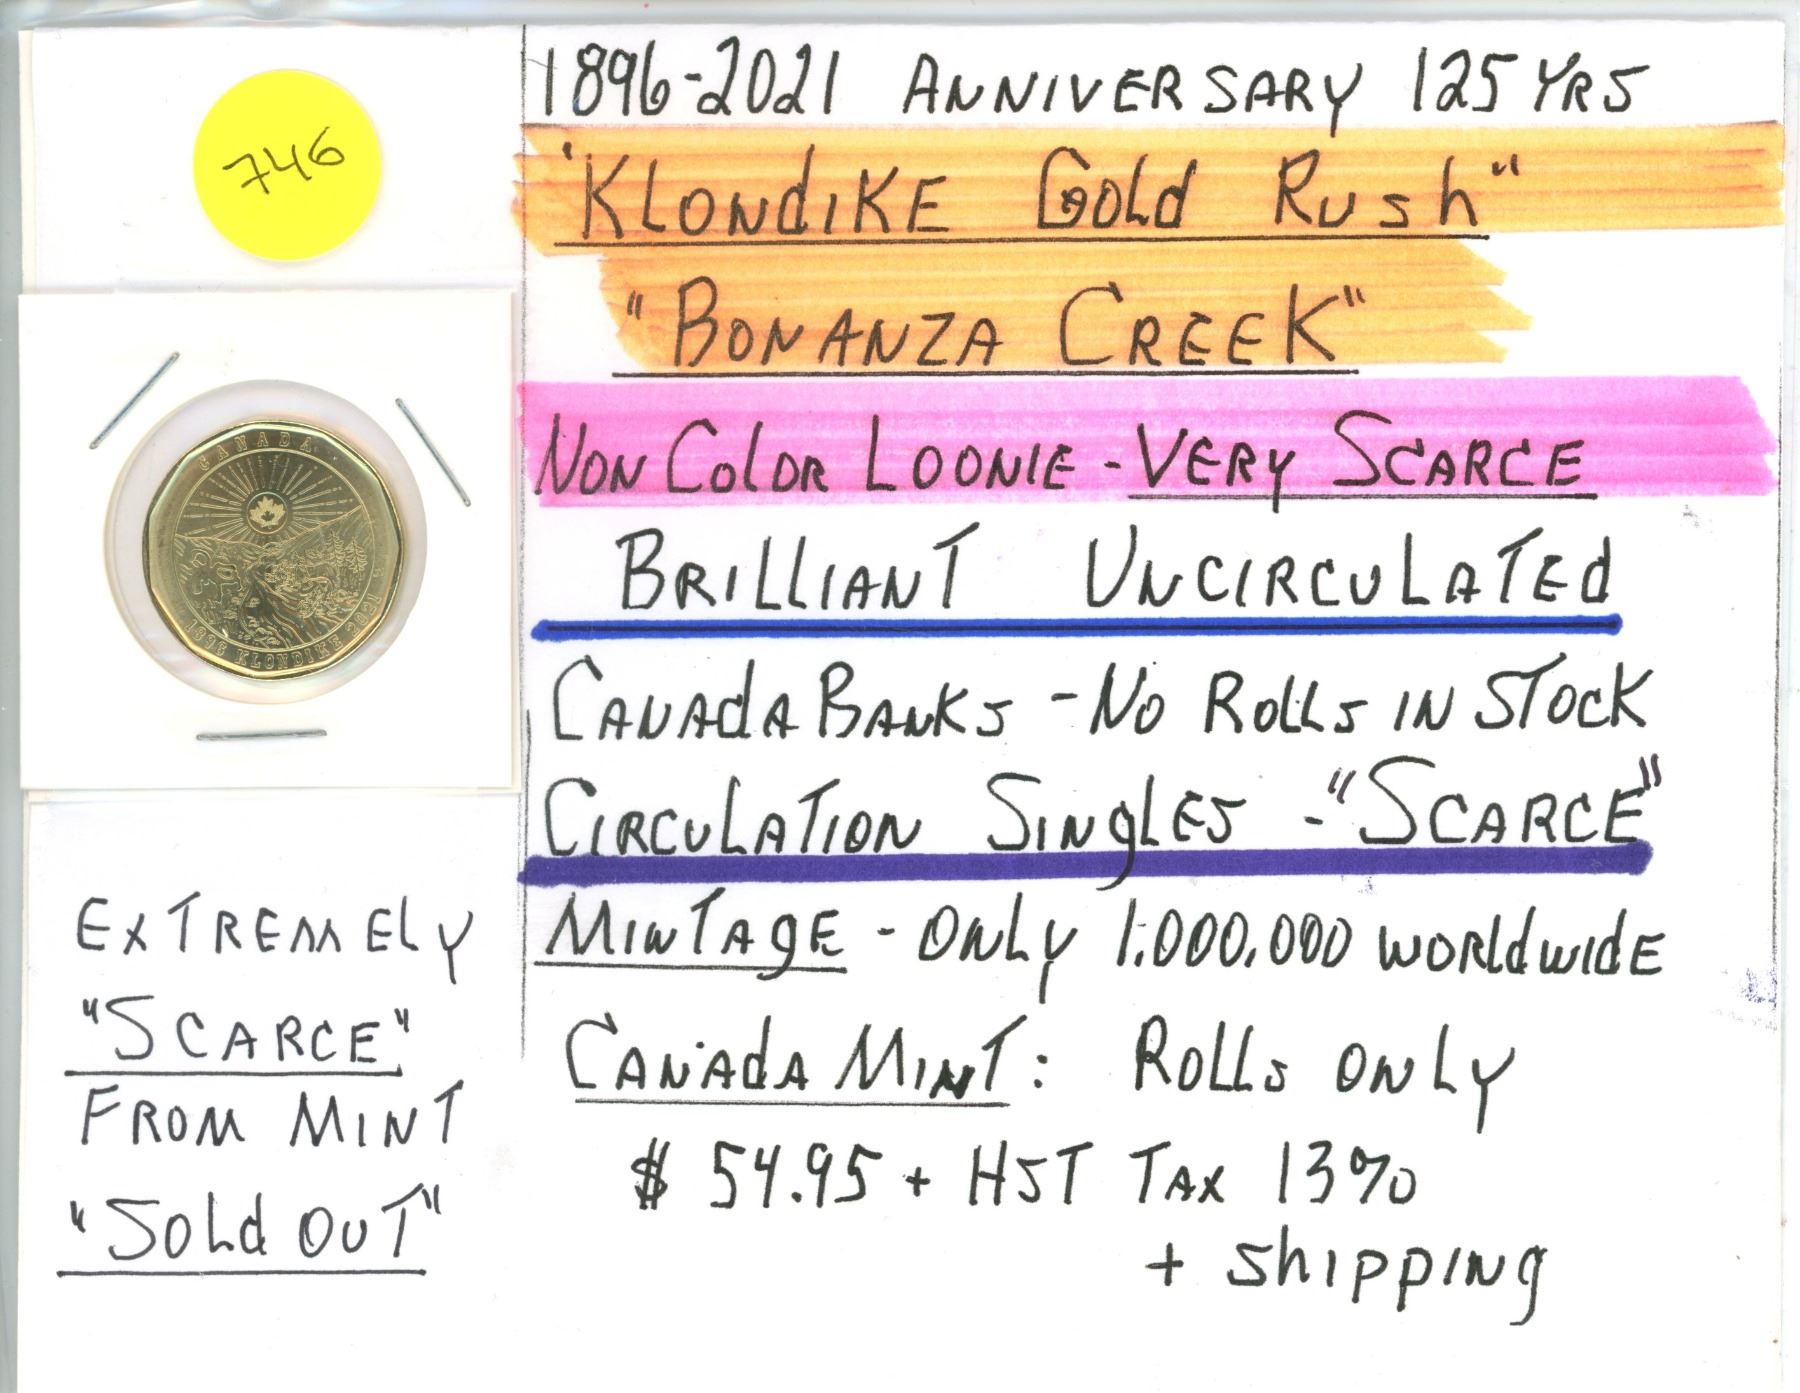 746
CANADA
1896 KLONDIKE 2021
EXTREMELY
"SCARCE"
FROM MINT
"SOLD OUT"
1896-2021 ANNIVERSARY 125 YRS
'KLONDIKE GOLD RUSH"
"BONANZA CREEK"
NON COLOR LOONIE - VERY SCARCE
BRILLIANT UNCIRCULATED
CANADA BANKS - NO ROLLS IN STOCK
CIRCULATION SINGLES - "SCARCE"
MINTAGE - ONLY 1.000.000 WORLDWIDE
CANADA MINT: ROLLS ONLY
$ 54.95 + HST TAX 13%
+ SHIPPING